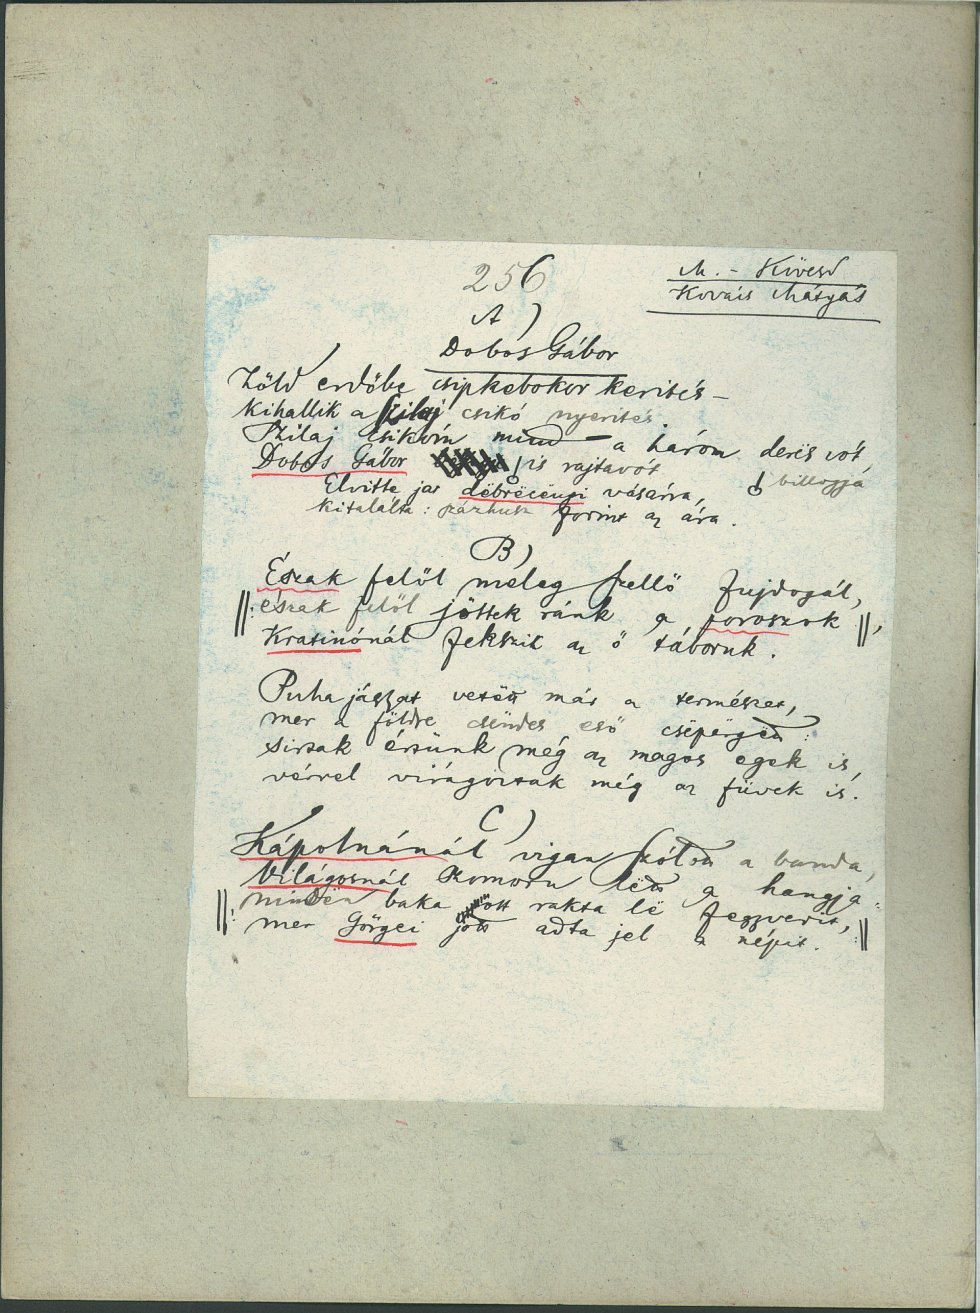 256
M. - Kövesd
Kovács Mátyás
A)
Dobos Gábor
Zöld erdőbe csipkebokor kerités –
kihallik a szilaj csikó nyerités.
Szilaj csikóm mind a három derës vót,
Dobos Gábor is rajtavót
billogjá
Elvitte jaz dëbrëcëngi vásárra,
kitalálta: százhusz forint az ára.
B)
Észak felöl meleg szellő fujdogál,
||: észak felöl jöttek ránk a poroszok ||,
Krasinónál fekszik az ő táboruk.
Puha jágyat vetëtt már a természet,
mer a földre csëndes eső csëpërgëtt:
sirtak értünk még az magos egek is,
vérrel virágoztak még az füvek is.
C)
Kápolnánál vigan szólott a banda,
Világosnál szomoru lëtt a hangja:
||: mindën baka ott rakta lë fegyverit,
mer Görgei jött adta jel a népit. :||